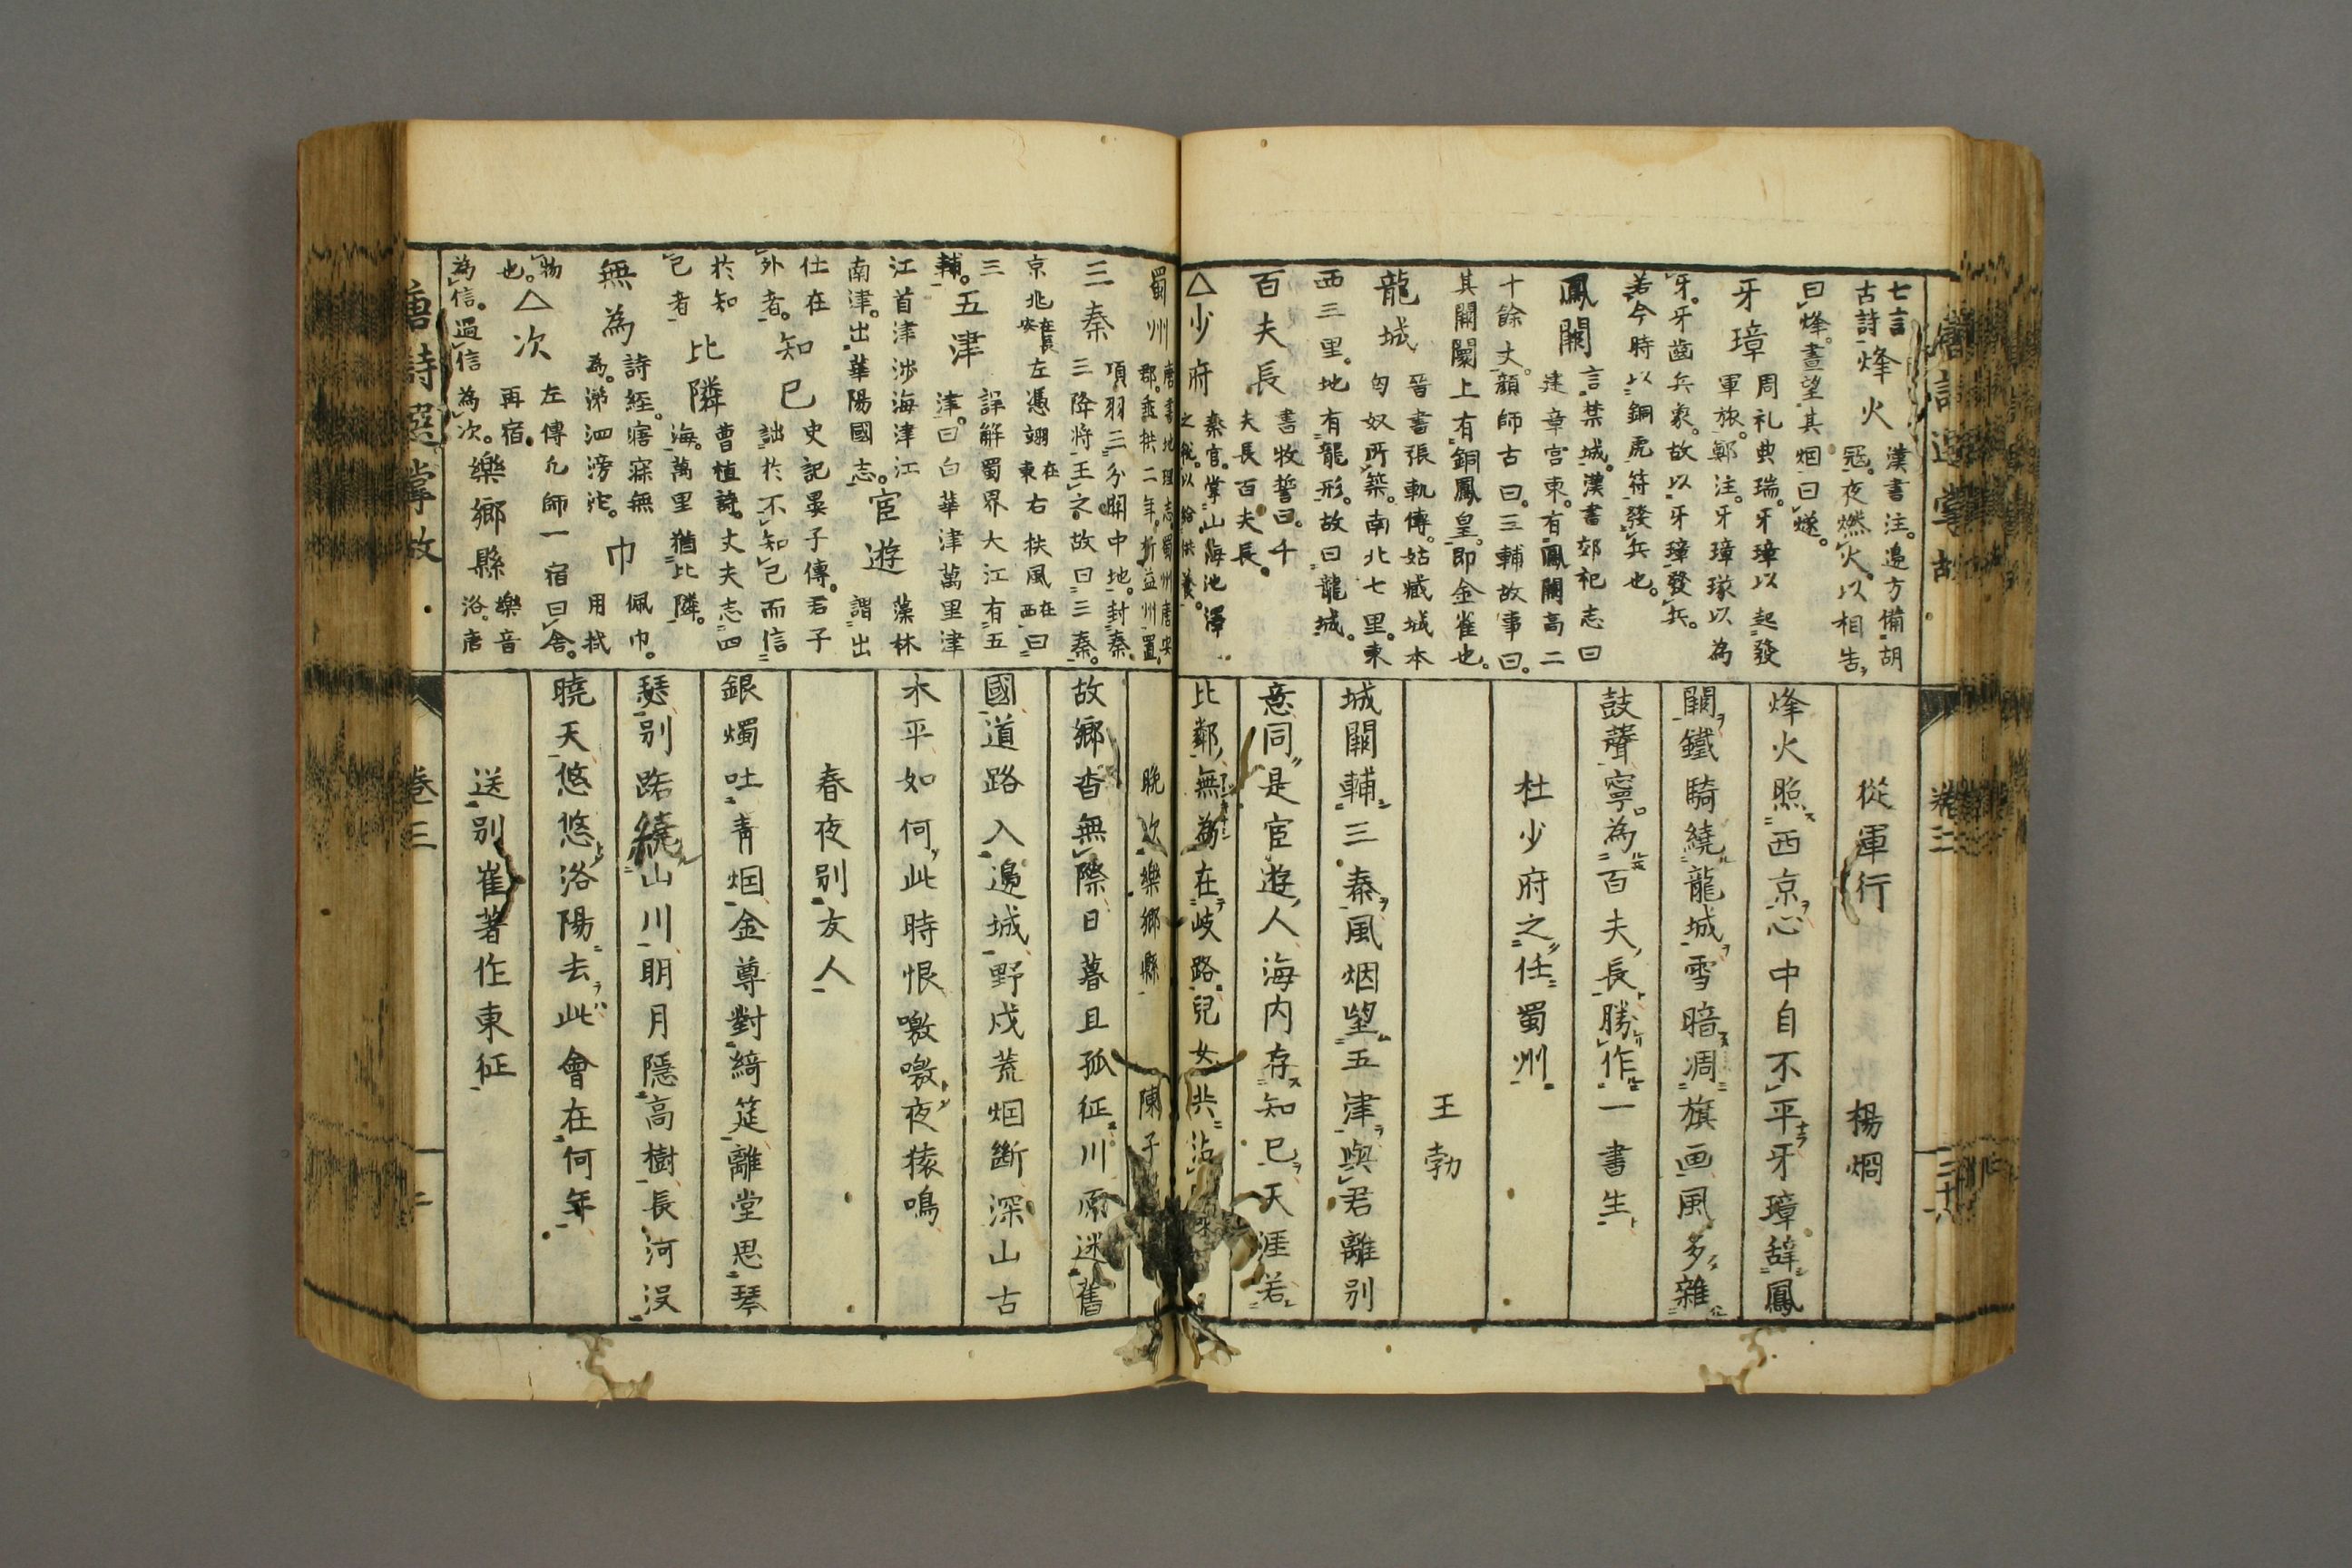 七言
古詩
烽火
漢書注。邊方備胡
冦。夜燃火。以相告
曰烽。晝望其烟曰燧。
牙璋
周礼典瑞。牙璋以起發
軍旅。鄭注。牙璋瑑以為
牙。牙齒兵象。故以牙璋發兵。
若今時以銅虎符發兵也。
鳳闕
言禁城。漢書郊祀志曰
建章宮東。有鳳闕高二
十餘丈。顔師古曰。三輔故事曰。
其闕闤上有銅鳳皇。即金雀也。
龍城
晉書張軌傳。姑臧城本
匈奴所築。南北七里。東
西三里。地有龍形。故曰龍城。
百夫長
書牧誓曰。千
夫長百夫長。
△少府
秦官。掌山海池澤
之稅。以給供養。
從軍行 楊烱
烽火照西京心中自不平牙璋辭鳳
闕鐵騎繞龍城雪暗凋旗画風多雜
鼓聲寧為百夫長勝作一書生
杜少府之任蜀州
王勃
城闕輔三秦風烟望五津與君離別
意同是宦遊人海内存知已天涯若
比鄰無為在岐路兒女共沾
蜀州
唐書地理志蜀州唐安
郡。垂拱二年。析益州置。
三秦
項羽三分關中地。封秦
三降將王之。故曰三秦。
京兆在長安左馮翊在東右扶風在西曰
三輔。
五津
詳解蜀界大江有五
津。曰白華津萬里津
江首津涉海津江
南津。出華陽國志。
宦遊
藻林
謂出
仕在
外者。
知已
史記晏子傳。君子
詘於不知己而信
於知
己者
比隣
曹植詩。丈夫志四
海。萬里猶比隣。
無為
詩經。寤寐無
為。涕泗滂沱。
巾
佩巾。
用拭
物
也。
△次
左傳凢師一宿曰舍。
再宿。
為信。過信為次。
樂鄉縣
樂音
洛。唐
晩次樂鄉縣 陳子
故鄉杳無際日暮且孤征川原迷舊
國道路入邊城野戍荒烟斷深山古
木平如何此時恨噭噭夜猿鳴
春夜別友人
銀燭吐青烟金尊對綺筵離堂思琴
瑟别路繞山川明月隱高樹長河没
曉天悠悠洛陽去此會在何年
送别崔著作東征
唐詩選掌故
卷三